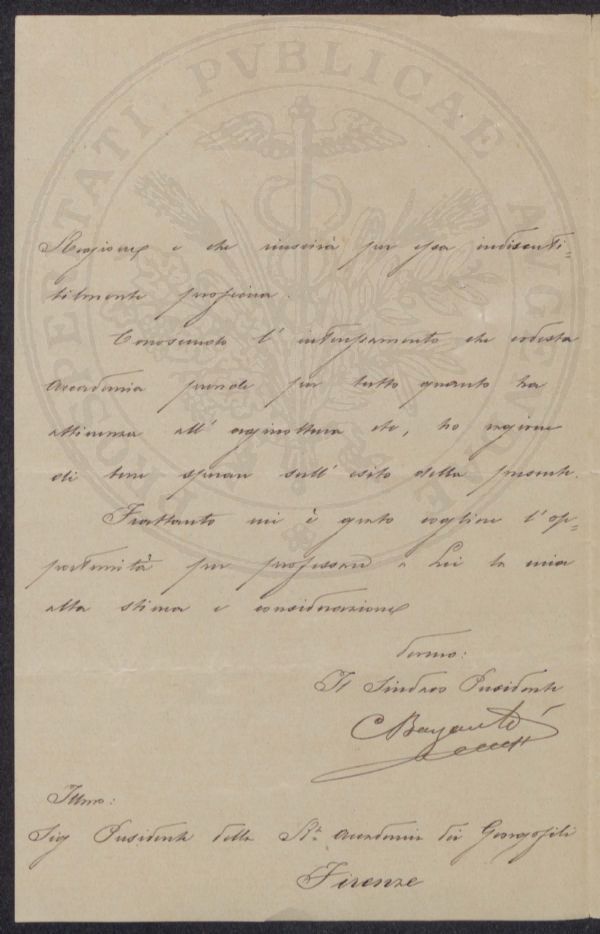 PROSPERITATI PVBLICAE AVGENDAE
e che riuscirà per essa indiscuti=
bilmente proficua.
Conoscendo l'interessamento che codesta
Accademia prende per tutto quanto ha
attinenza all'agricoltura etc, ho ragione
di bene sperare sull'esito della presente.
Frattanto mi è grato cogliere l'op=
portunità per professare a Lei la mia
alta stima e considerazione
Il Sindaco Presidente
Illmo:
Sig Presidente della Rª Accademia dei Georgofili
Firenze